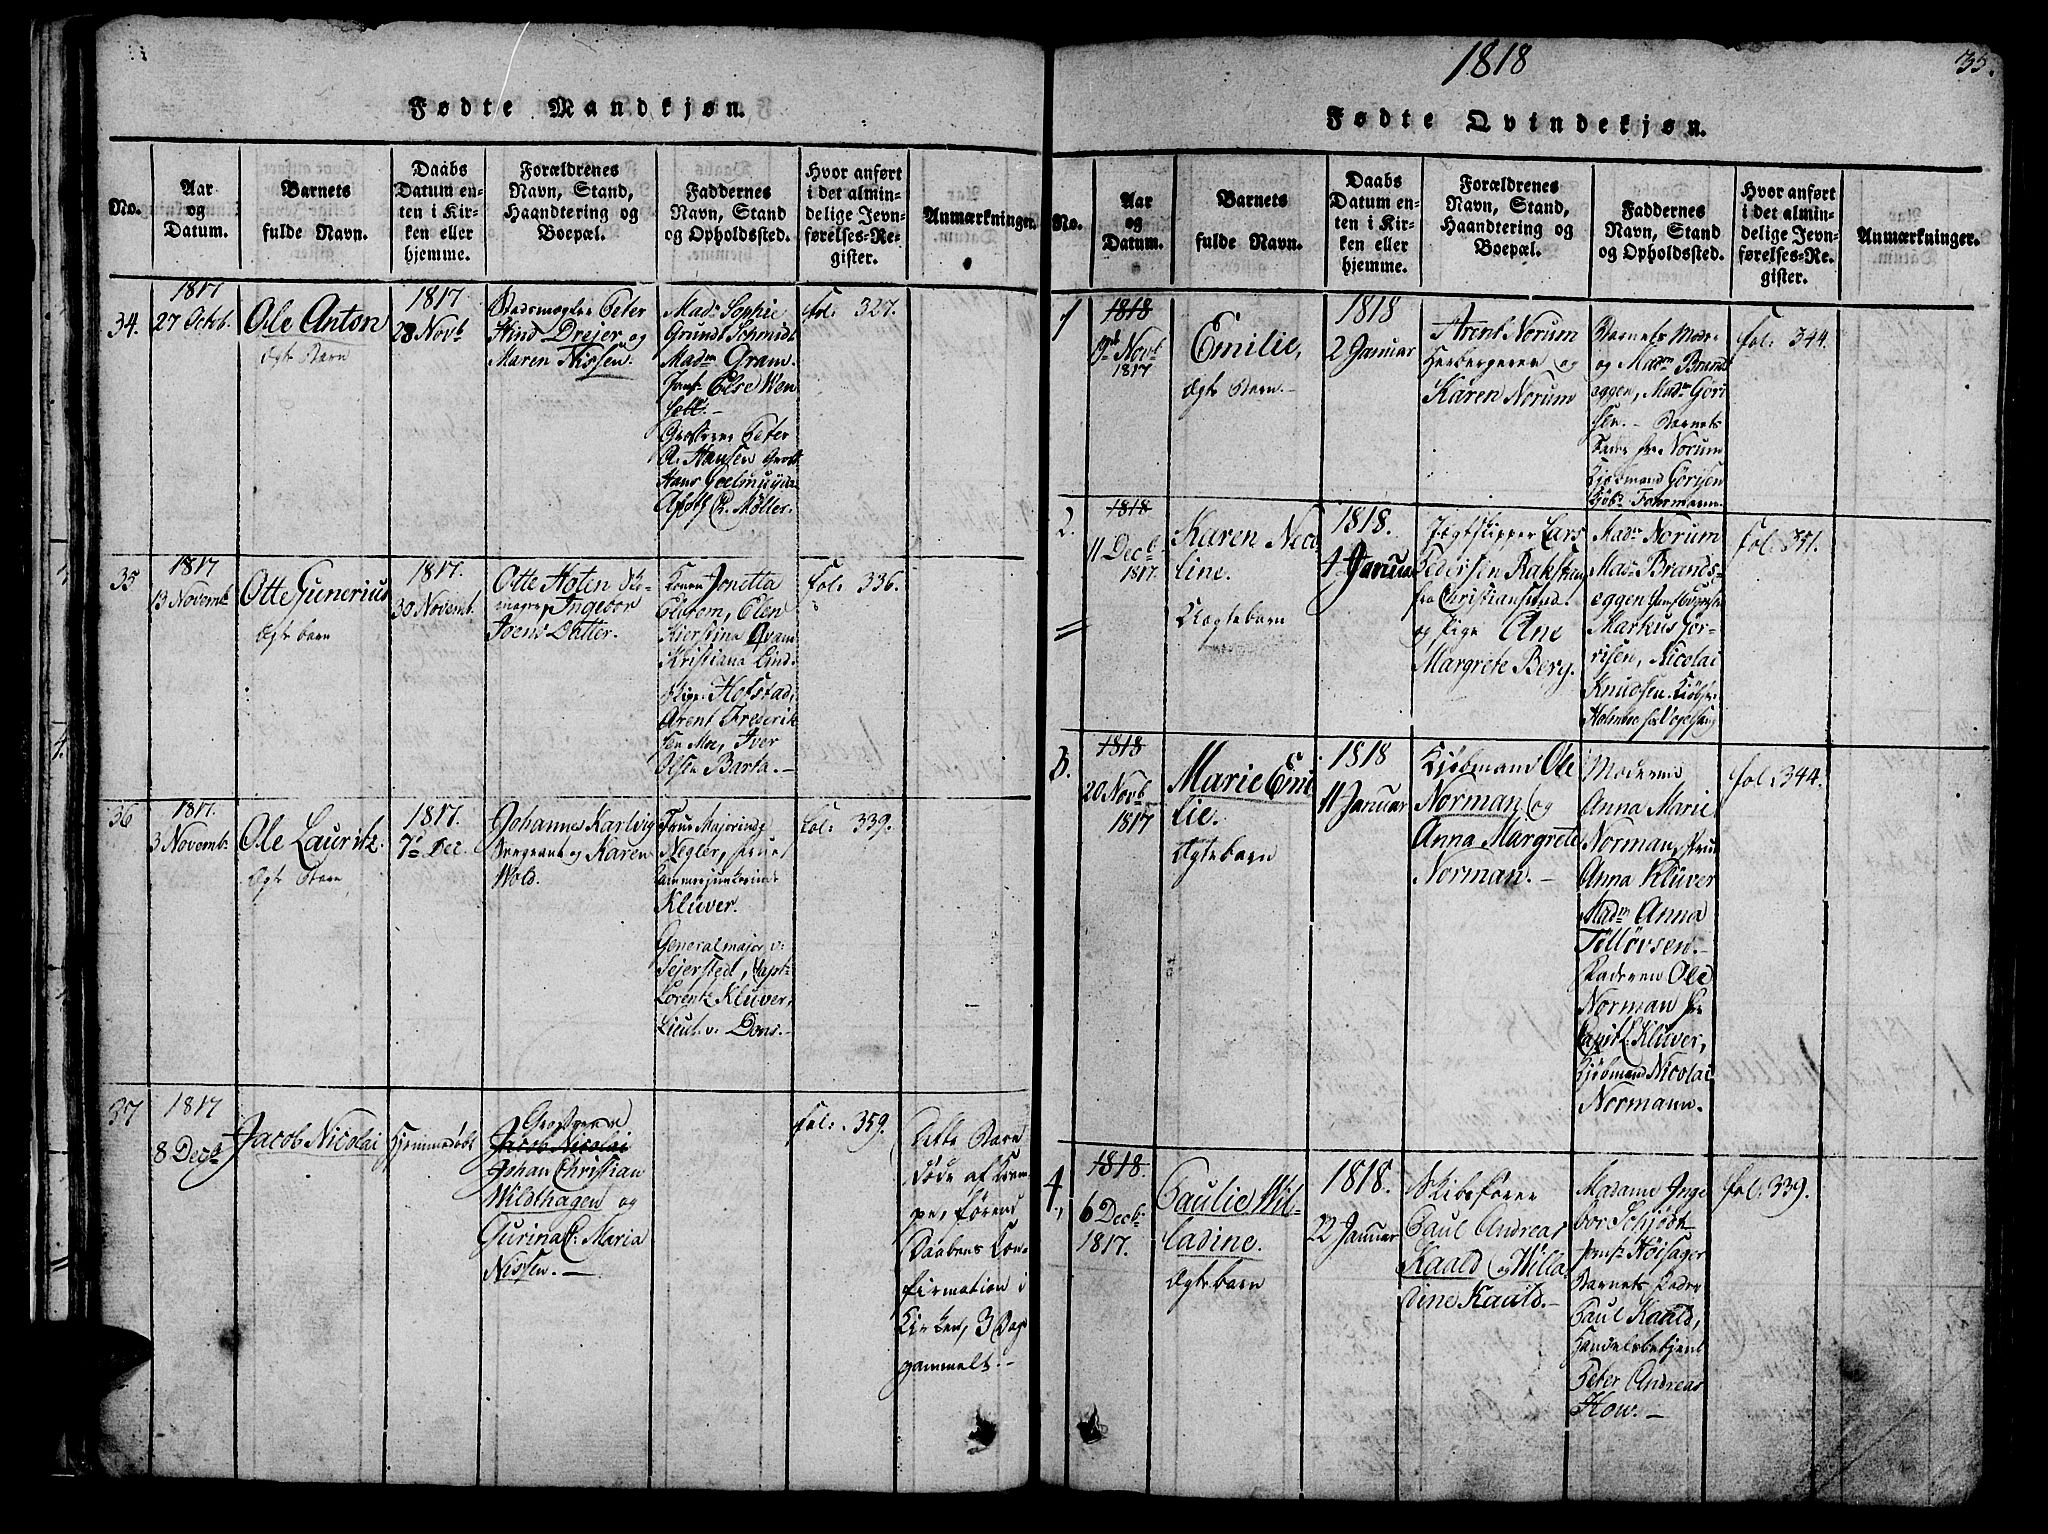 Fødte Mandkjøn.
No.
Aar
og
Datum.
Barnets
fulde Navn.
Daabs
Datum en-
ten i Kir-
ken eller
hjemme.
Forældrenes
Navn, Stand,
Haandtering og
Boepæl.
Faddernes
Navn, Stand
og Opholdssted.
Hvor anført
i det almin-
delige Jevn-
førelses-Re-
gister.
Anmærkninger.
34.
1817
27 Octob.
Ole Anton
Ægte Barn
1817
23 Novb
Peter
Hind Drejer og
Maren Nissen.
Mad: Sophie
Grundt Schmidt
Madm Gram
Jomf: Else Wen
sell.-
Peter
A. Hansen
Hans Geelmuyden
R. Møller.
fol: 327.
35
1817
13 Novemb.
Otte Gunerius
Ægte barn
1817.
30 Novemb.
Otte Hoten
Ingebor
Joens Datter.
Konen Jonetta
Elistom, Elen
Kierstina Qvam
Kristiana Lind.
Pige. Hofstad,
Arent Frederik
sen Moe, Iver
Olsen Barta.-
fol: 336.
36
1817.
3 Novemb:
Ole Lauritz.
Ægte Barn
1817.
7 Dec.
Johannes Karlvig
Sergeant og Karen
Wold.
Frue Majorinde
Negler, Frue
Kammerjunkerinde
Klüver.
Generalmajor v:
Sejersted, Capt-
Lorentz Klüver,
Lieut. v: Dons.-
fol: 339.
37
1817
8 Decb
Jacob Nicolai
Hjemmedøbt
Grosserer
Jacob Nicolai
Johan Christian
Wildhagen og
Gurina C: Maria
Nissen.-
fol: 359.
Dette Barn
døde af Kram-
pe, førend
Daabens Con-
firmation i
Kirken, 3 Dage
gammelt.-
1818
35.
Fødte Qvindekjøn.
No.
Aar
og
Datum.
Barnets
fulde Navn.
Daabs
Datum en-
ten i Kir-
ken eller
hjemme.
Forældrenes
Navn, Stand,
Haandtering og
Boepæl.
Faddernes
Navn, Stand
og Opholdssted.
Hvor anført
i det almin-
delige Jevn-
førelses-Re-
gister.
Anmærkninger.
1
1818
9d Novb
1817
Emilie,
Ægte Barn.-
1818
2 Januar
Arent Norum
Herbergerer og
Karen Norum
Barnets Moder
og Madm Brands
eggen, Madm Göri
sen.- Barnets
Fader hr. Norum
Kjøbmand Görisen
Kjøbm Fohrmann.
fol: 344.
2.
1818
11 Decb
1817.
Karen Nico-
line.
Uægtebarn
1818.
4 Januar
Jægtskipper Lars
Pedersen Rakstang
fra Christianssund.
og Pige Ane
Margrete Berg.
Madm Norum
Madm Brands-
eggen
Markus Gör-
risen, Nicolai
Knudsen.
fol: 341.
3.
1818
20 Novb
1817
Marie Emi
lie.
Ægtebarn
1818
11 Januar
Kjøbmand Ole
Norman og
Anna Margrete
Norman.-
Moderen
Anna Marie
Norman, Frue
Anna Klüver
Madm Anna
Tellövsen.-
Faderen Ole
Norman hr
Capit L. Klüver,
Kjøbmand Nicolai
Normann.
fol: 344.
4.
1818.
6 Decb
1817.
Paulie Wil-
ladine.
Ægtebarn
1818.
22 Januar
Skibsfører
Paul Andreas
Kaald og Willa-
dine Kaald.-
Madame Inge
bor Schjødt
Jomf: Höisager
Barnets Fader
Paul Kaald,
Handelsbetjent
Peter Andreas
How.-
fol: 339.